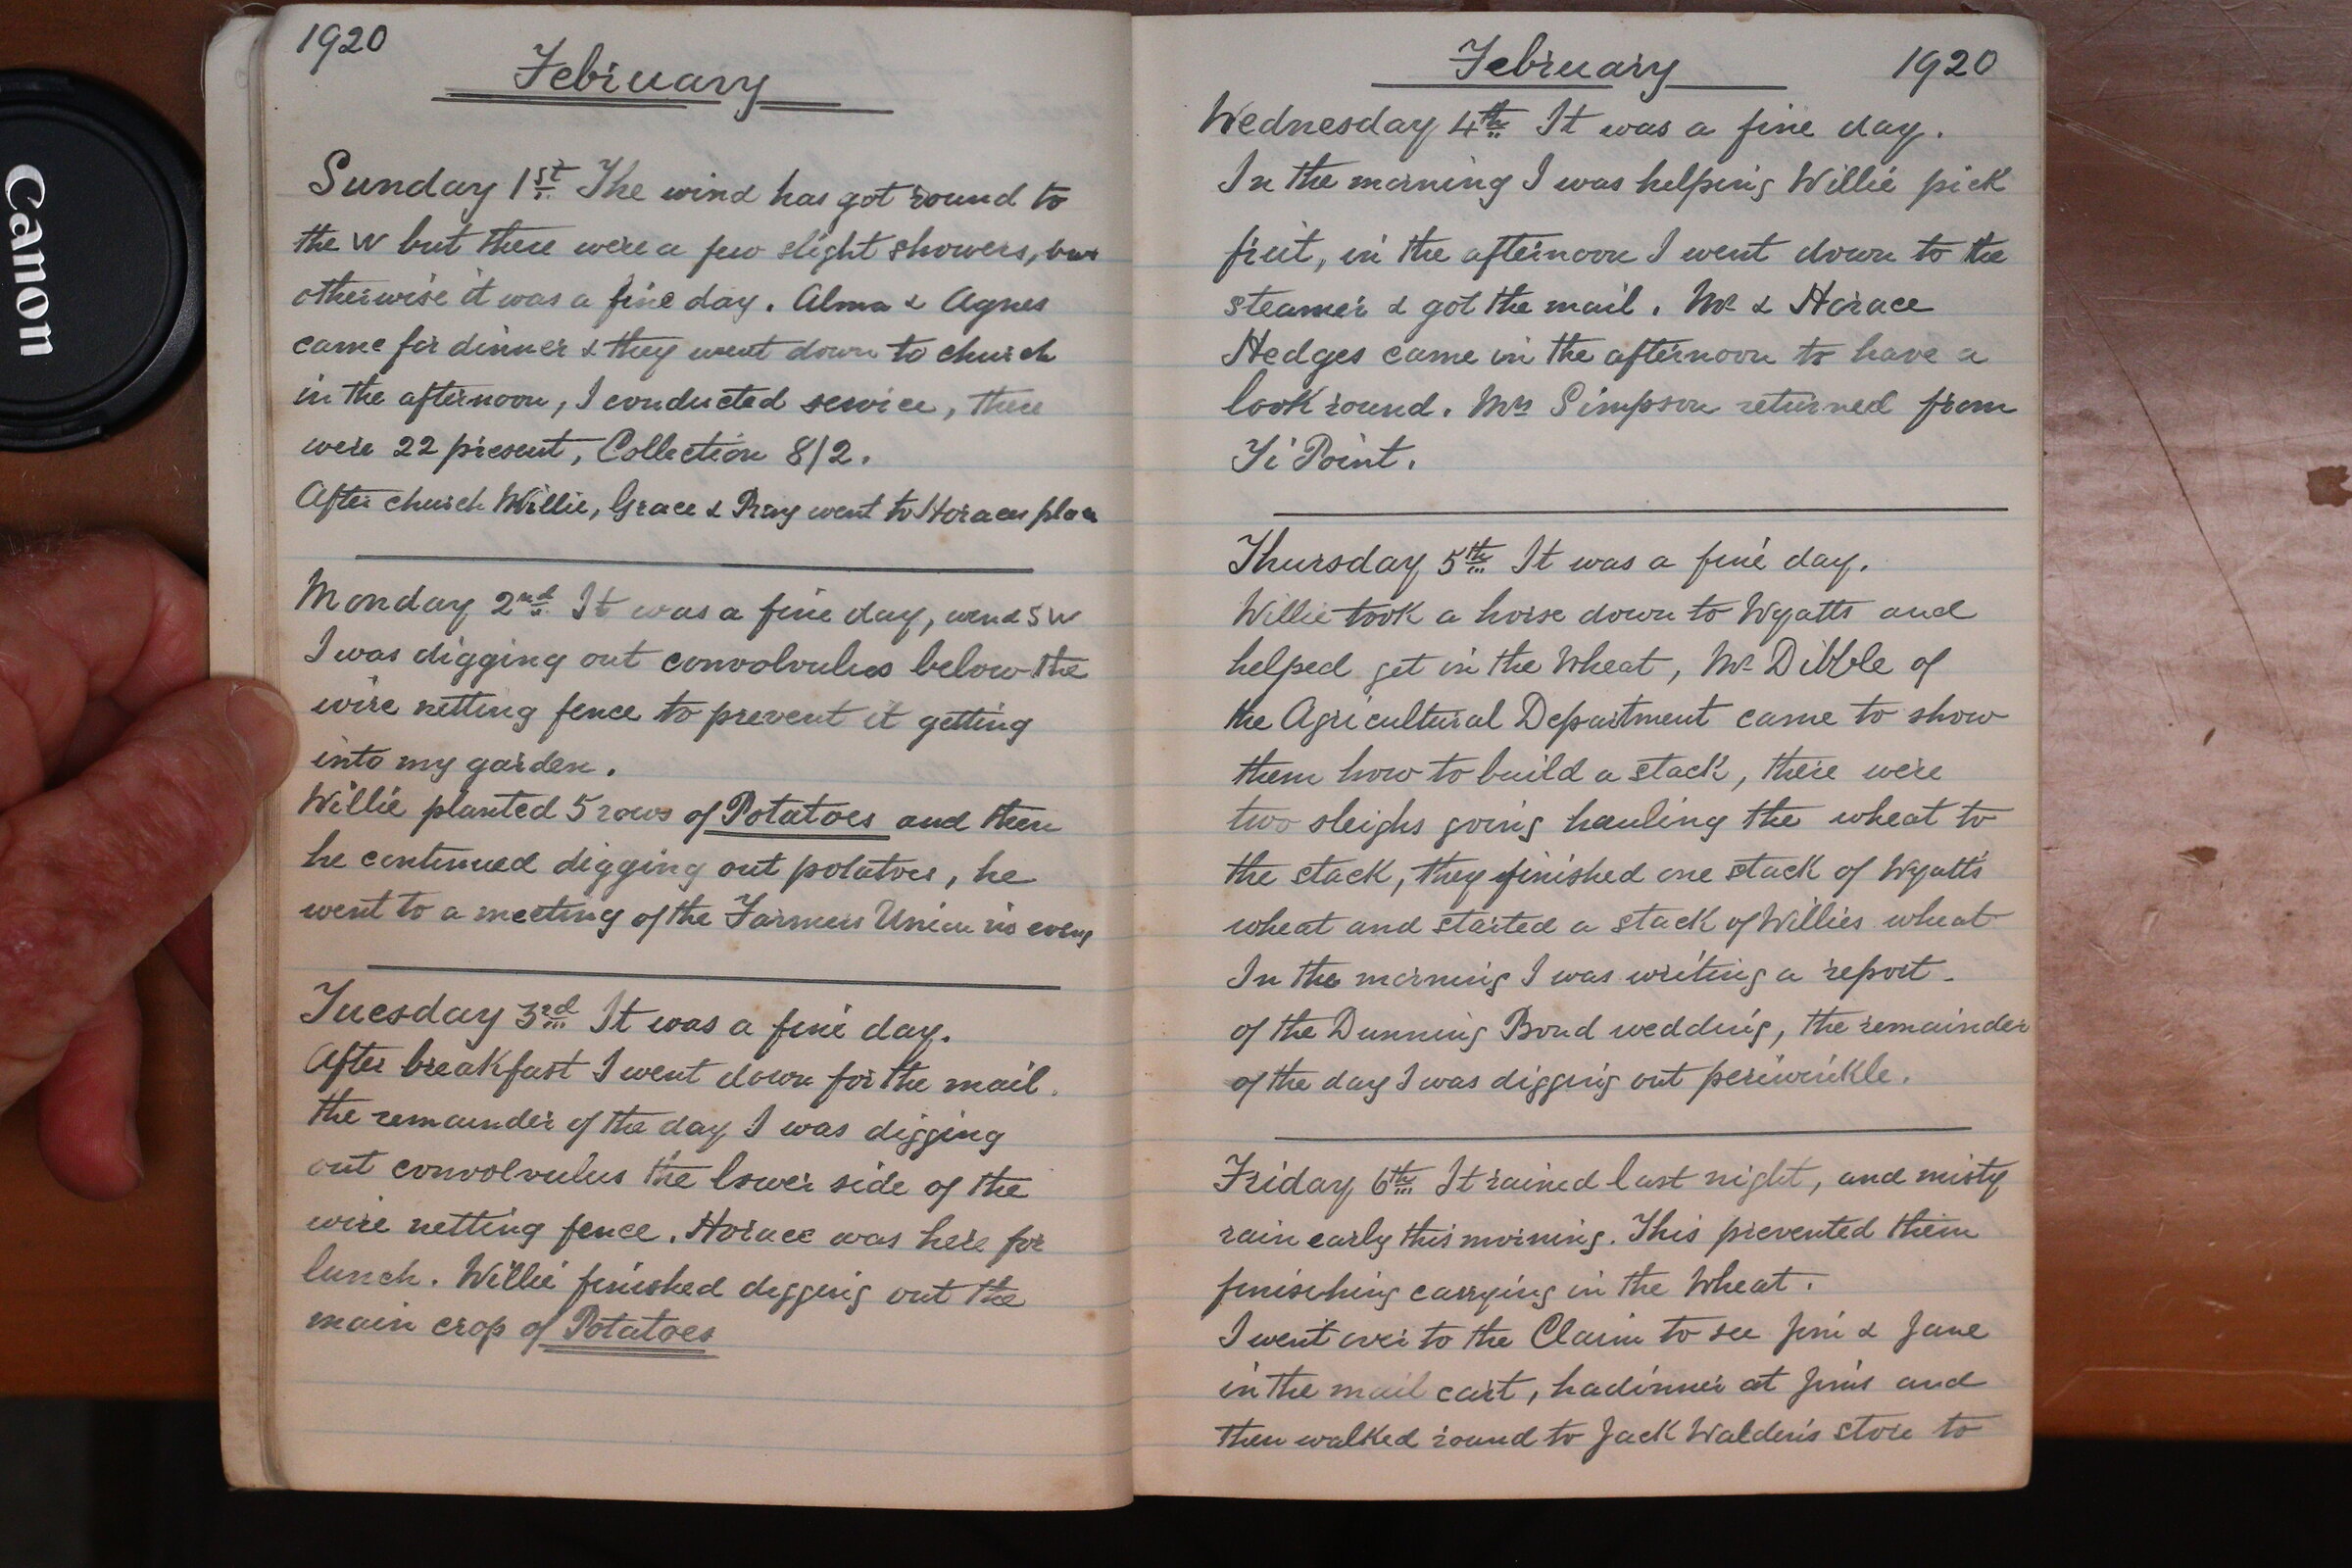 Canon
1920
February
Sunday 1st The wind has got round to
the W but there were a few slight showers, but
otherwise it was a fine day. Alma & Agnes
came for dinner & they went down to church
in the afternoon, I conducted service, there
were 22 present, Collection 8/2.
After church Willie, Grace & went to Horaces place
Monday 2nd It was a fine day, wind SW
I was digging out convolvulus below the
wire netting fence to prevent it getting
into my garden.
Willie planted 5 rows of Potatoes and then
he continued digging out potatoes, he
went to a meeting of the Farmers Union in eveng
Tuesday 3rd It was a fine day.
After breakfast I went down for the mail.
the remainder of the day I was digging
out convolvulus the lower side of the
wire netting fence. Horace was here for
lunch. Willie finished digging out the
main crop of Potatoes
February 1920
Wednesday 4th It was a fine day.
In the morning I was helping Willie pick
fruit, in the afternoon I went down to the
steamer & got the mail. Mr & Horace
Hedges came in the afternoon to have a
look round. Mrs Simpson returned from
Ti Point.
Thursday 5th It was a fine day.
Willie took a horse down to Wyatts and
helped get in the Wheat, Mr Dibble of
the Agricultural Department came to show
them how to build a stack, there were
two sleighs going hauling the wheat to
the stack, they finished one stack of Wyatts
wheat and started a stack of Willies wheat
In the morning I was writing a report
of the Dunning Bond wedding, the remainder
of the day I was digging out periwinkle.
Friday 6th It rained last night, and misty
rain early this morning. This prevented them
finisching carrying in the Wheat.
I went over to the Claim to see Jim & Jane
in the mail cart, hadinner at Jims and
then walked round to Jack Walden's store to